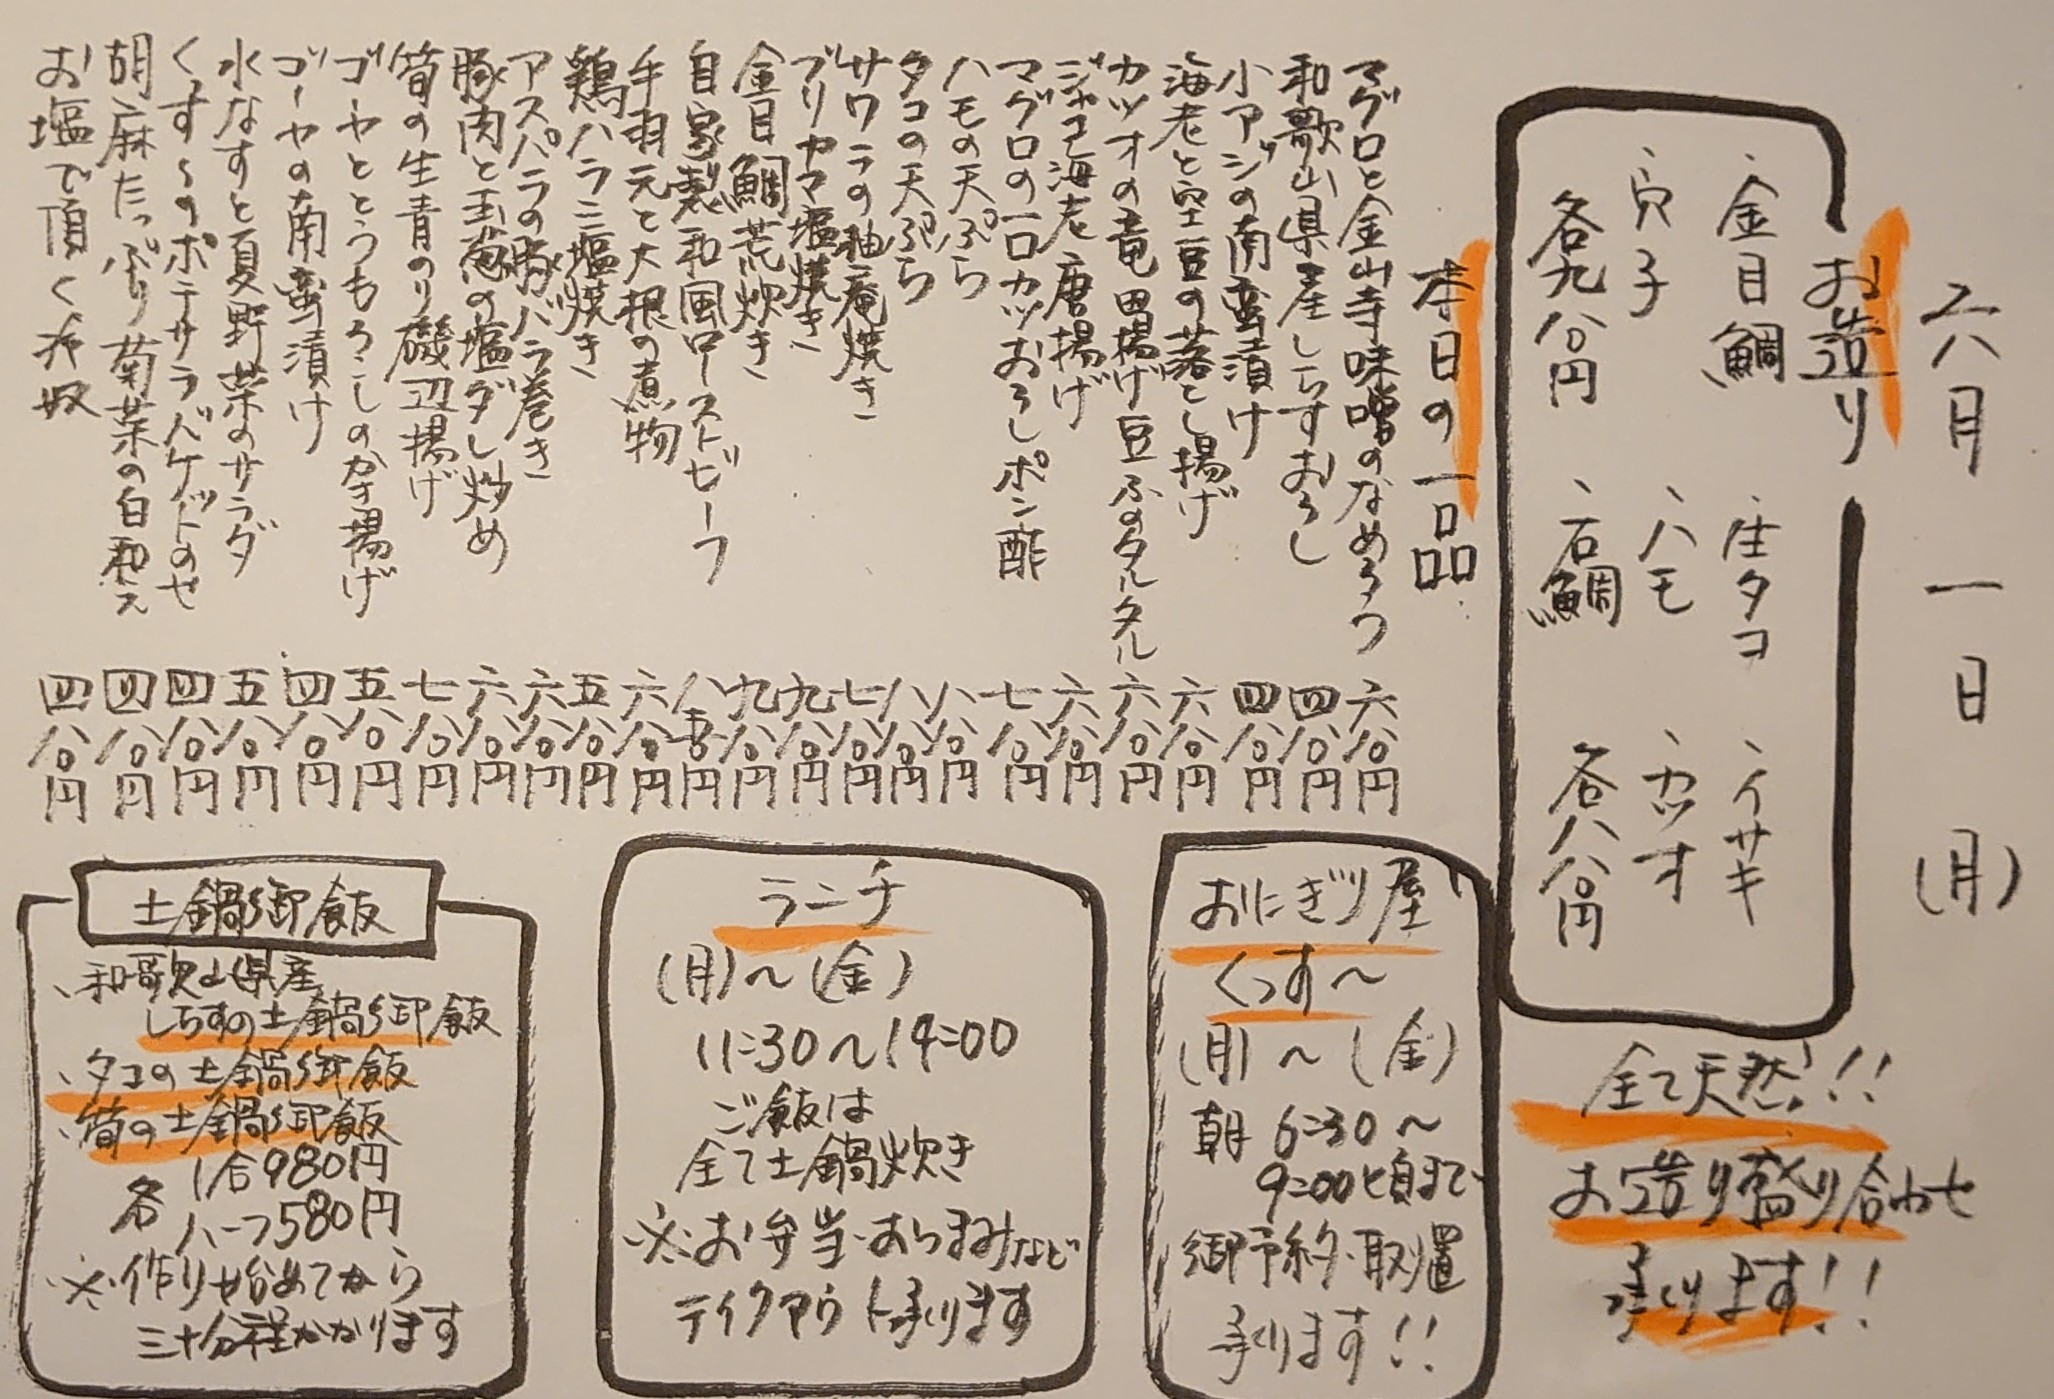 六月一日(月)
お造り
、金目鯛 、活タコ 、イサキ
、穴子 、ハモ 、カツオ
各九八〇円 、石鯛 各八八〇円
全て天然!!
お造り盛り合わせ
承ります!!
本日の一品
マグロと金山寺味噌のなめろう 六八〇円
和歌山県産しらすおろし 四八〇円
小アジの南蛮漬け 四八〇円
海老と空豆の落とし揚げ 六八〇円
カツオの竜田揚げ豆ふのタルタル 六八〇円
ジャコ海老唐揚げ 六八〇円
マグロの一口カツおろしポン酢 七八〇円
ハモの天ぷら 八八〇円
タコの天ぷら 八八〇円
サワラの柚庵焼き 七八〇円
ブリカマ塩焼き 九八〇円
金目鯛荒炊き 九八〇円
自家製和風ローストビーフ 八五〇円
手羽元と大根の煮物 六八〇円
鶏ハラミ塩焼き 五八〇円
アスパラの豚バラ巻き 六八〇円
豚肉と玉葱の塩ダレ炒め 六八〇円
筍の生青のり磯辺揚げ 七八〇円
ゴーヤととうもろこしのかき揚げ 五八〇円
ゴーヤの南蛮漬け 四八〇円
水なすと夏野菜のサラダ 五八〇円
くっす〜のポテサラバケットのせ 四八〇円
胡麻たっぷり菊菜の白和え 四八〇円
お塩で頂く冷奴 四八〇円
おにぎり屋
くっす〜
(月)〜(金)
朝 6:30〜
9:00頃まで
御予約・取置
承ります!!
ランチ
(月)〜(金)
11:30〜14:00
ご飯は
全て土鍋炊き
※お弁当・おつまみなど
テイクアウト承ります
土鍋御飯
、和歌山県産
しらすの土鍋御飯
、タコの土鍋御飯
、筍の土鍋御飯
各 1合980円
ハーフ580円
※作り始めてから
三十分程かかります